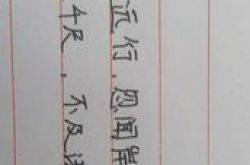 远行，忽闻岸
千尺，不及